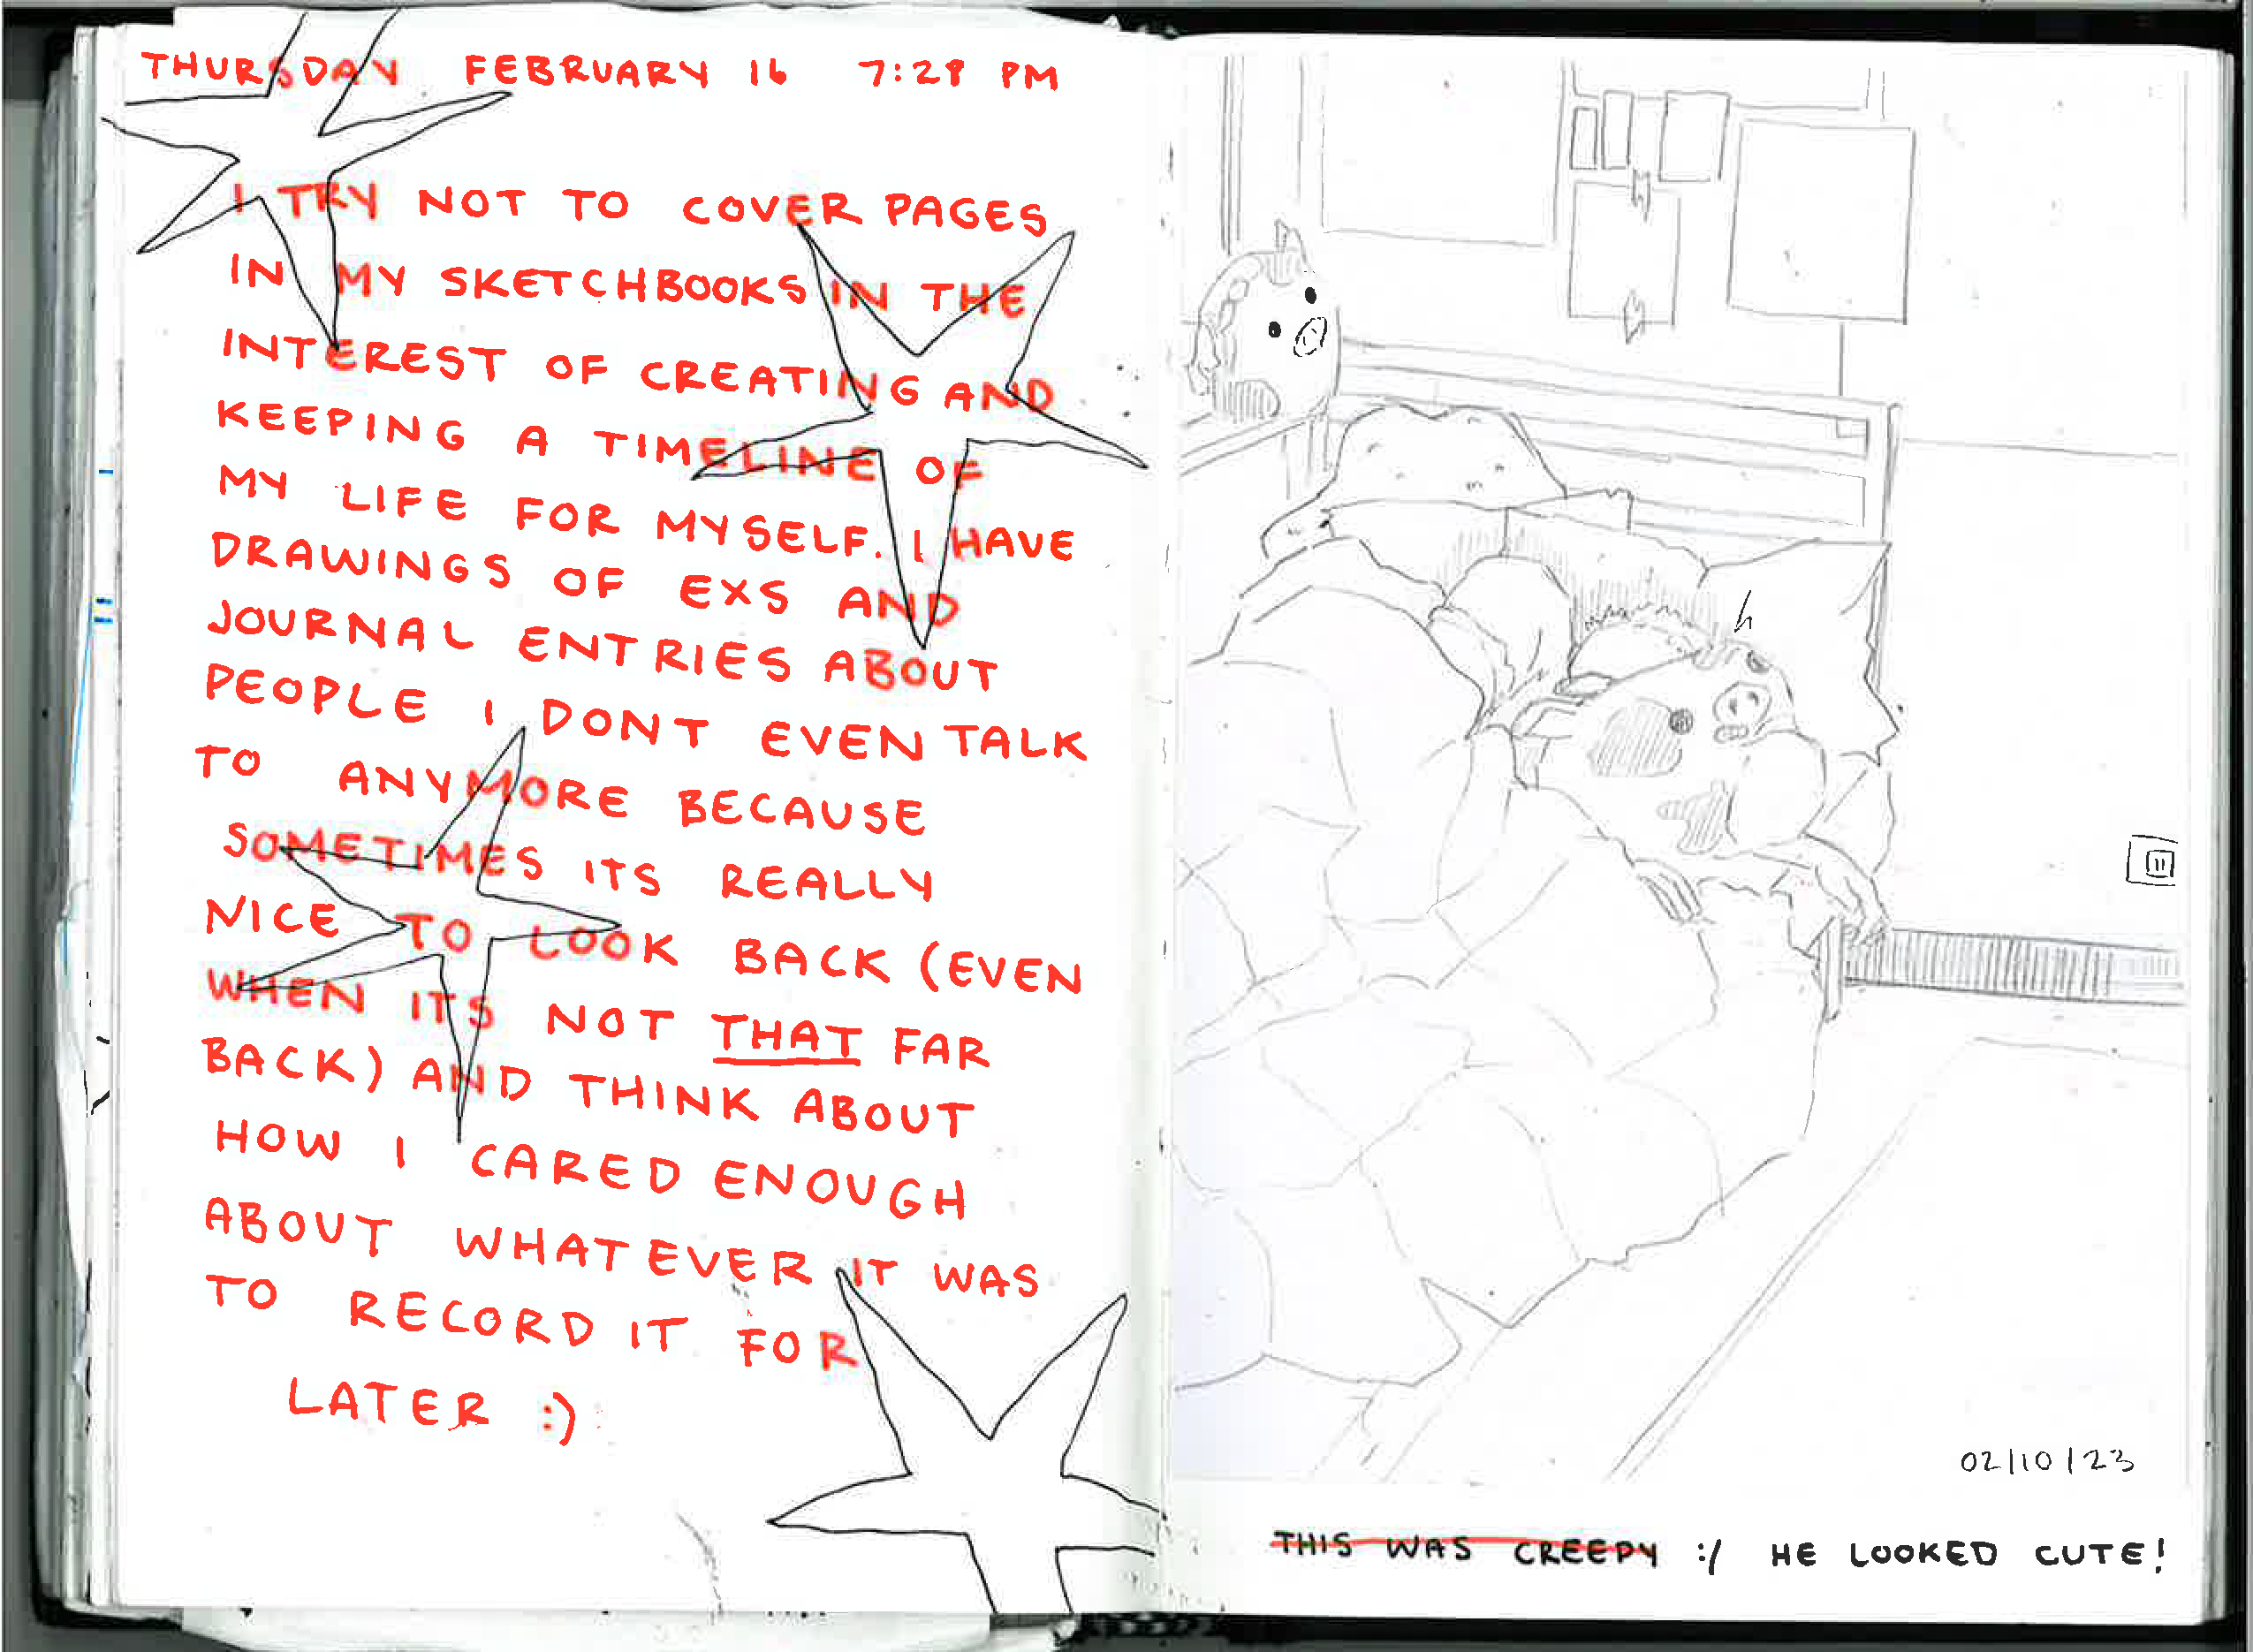 THURSDAY FEBRUARY 16 7:28 PM
I TRY NOT TO COVER PAGES
IN MY SKETCHBOOKS IN THE
INTEREST OF CREATING AND
KEEPING A TIMELINE OF
MY LIFE FOR MYSELF. I HAVE
DRAWINGS OF EXS AND
JOURNAL ENTRIES ABOUT
PEOPLE I DONT EVEN TALK
TO ANYMORE BECAUSE
SOMETIMES ITS REALLY
NICE TO LOOK BACK (EVEN
WHEN ITS NOT THAT FAR
BACK) AND THINK ABOUT
HOW I CARED ENOUGH
ABOUT WHATEVER IT WAS
TO RECORD IT FOR
LATER :)
02/10/23
THIS WAS CREEPY :/ HE LOOKED CUTE!